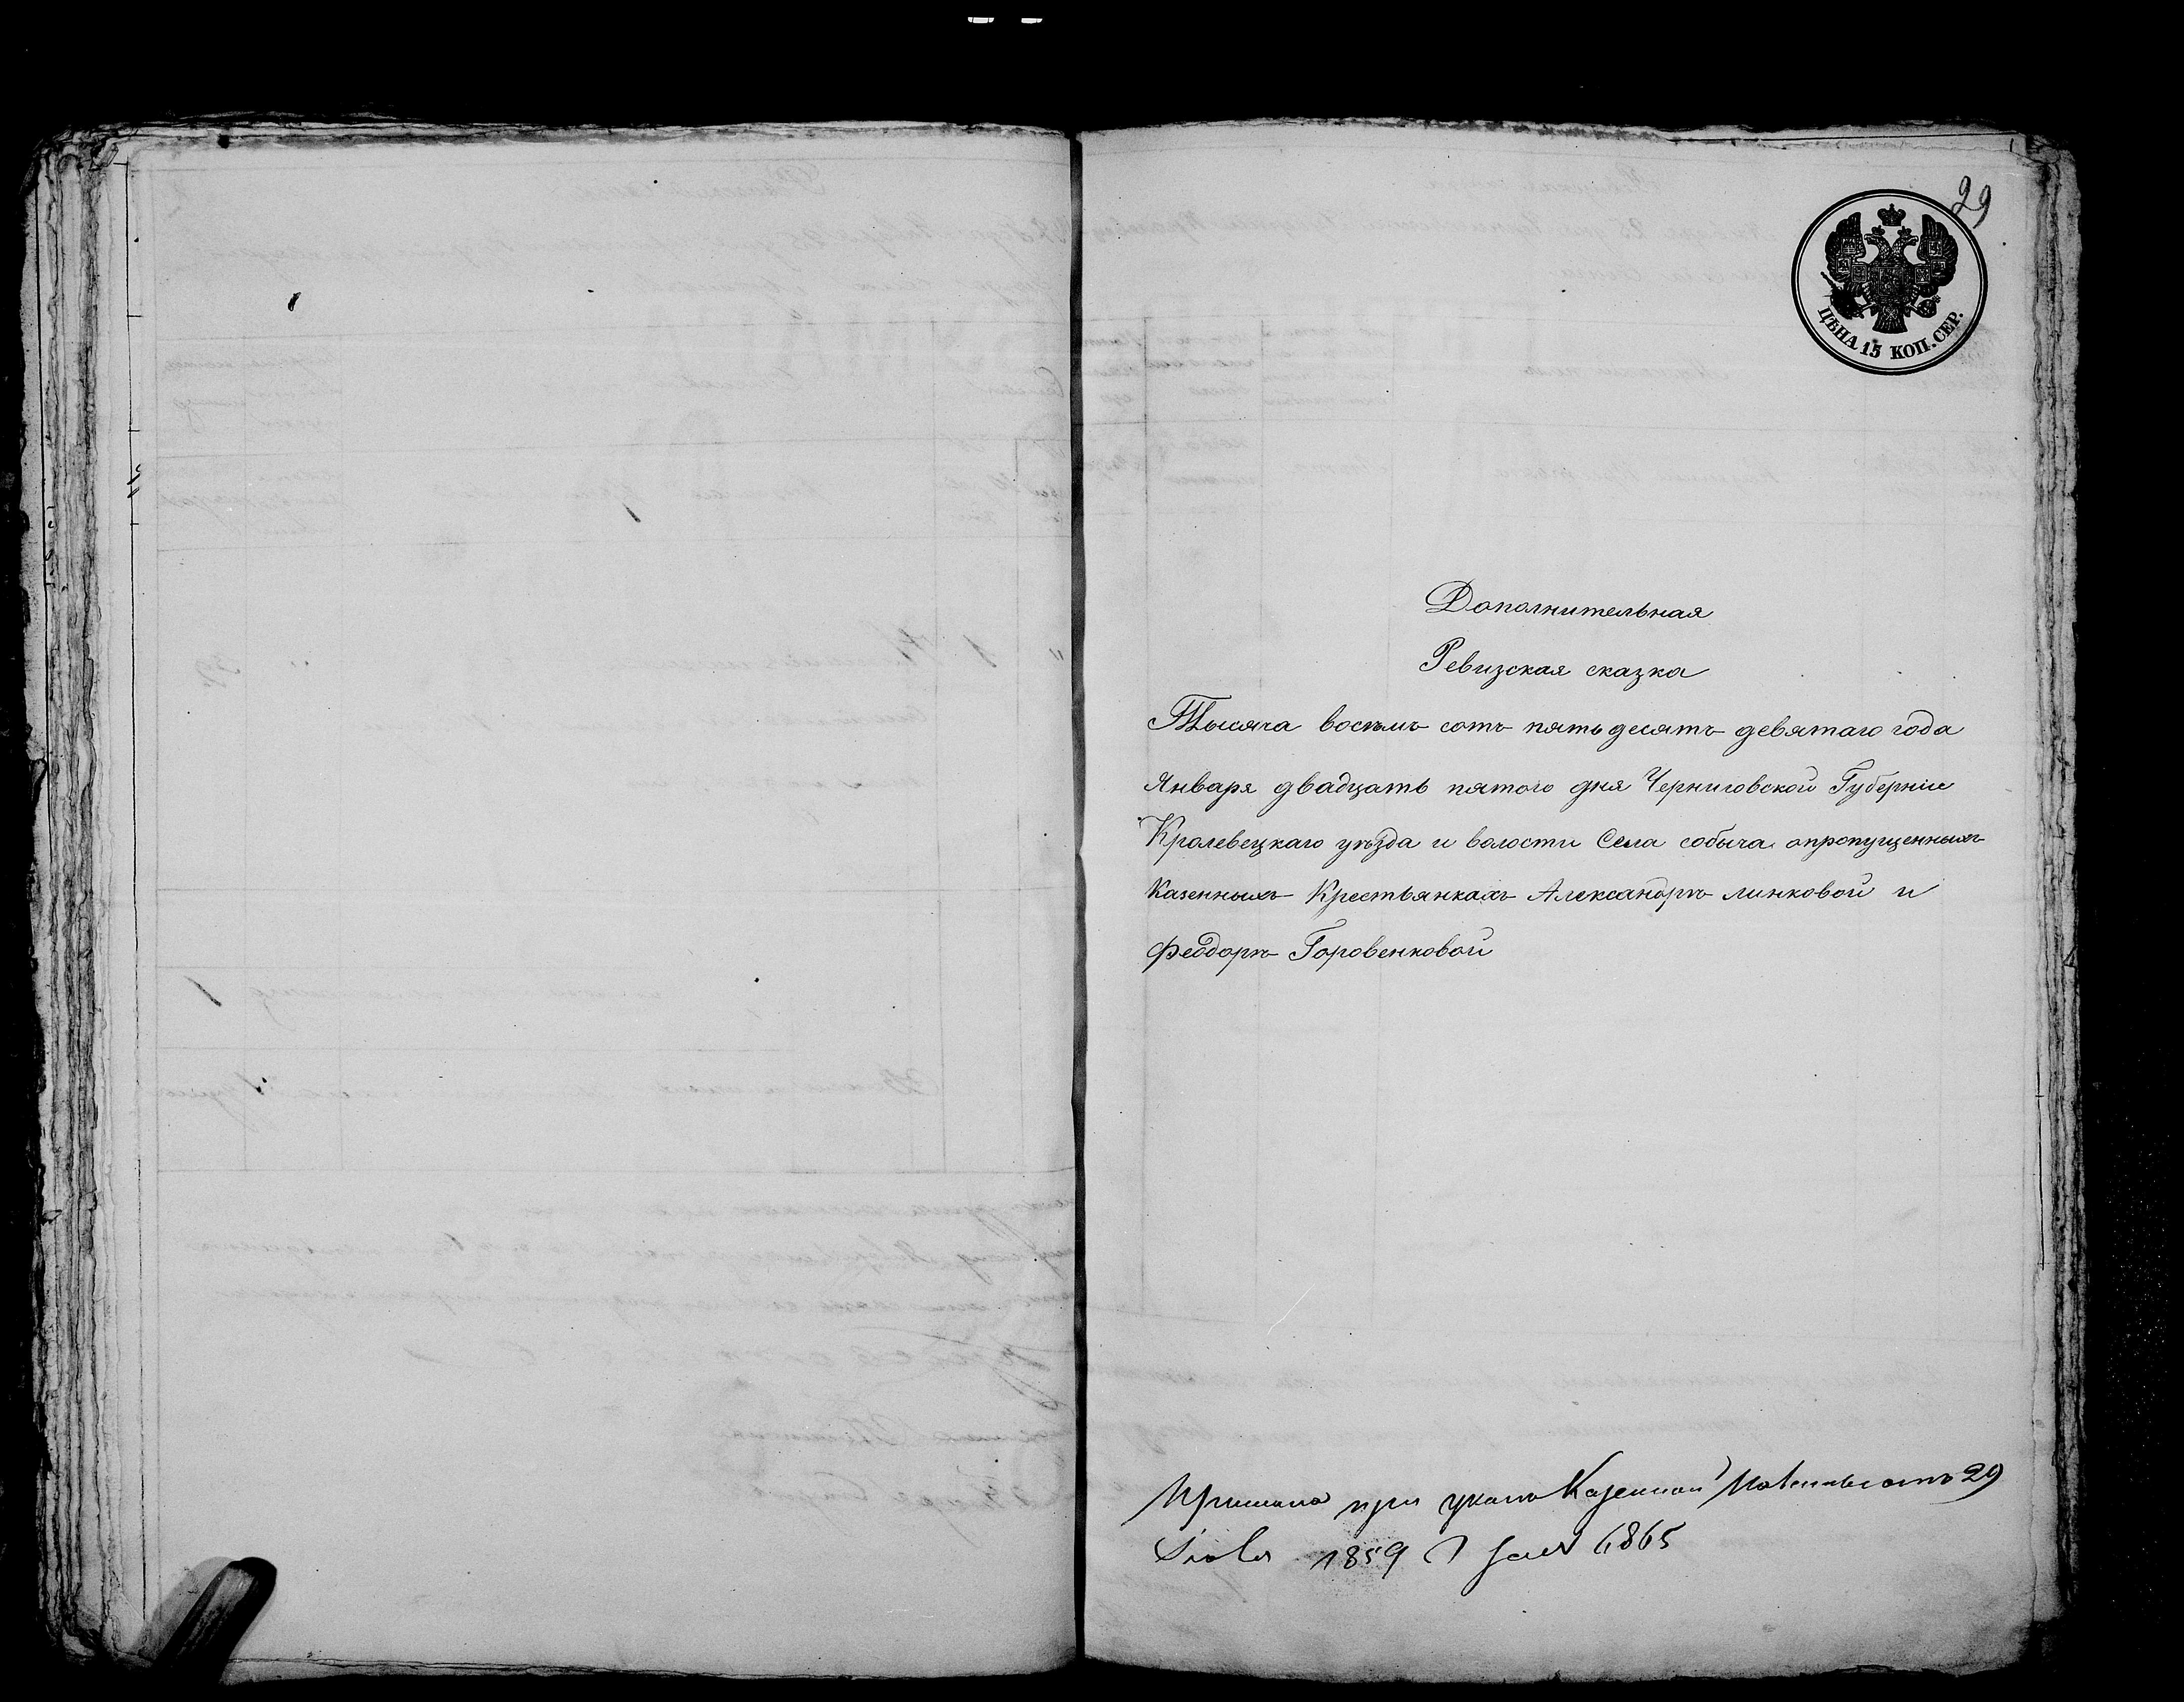 29
ЦѢНА 15 КОП. СЕР.
Дополнительная
Ревизская сказка
Тысяча восемь сотъ пятьдесятъ девятаго года
Января двадцать пятого дня Черниговской Губерніи
Кролевецкаго уѣзда и волости Села собыча опропущенныхъ
Казенныхъ Крестьянкахъ Александрѣ линковой и
Феодорѣ Горовенковой
при указѣ Казенной Палаты отъ 29
1859 1865